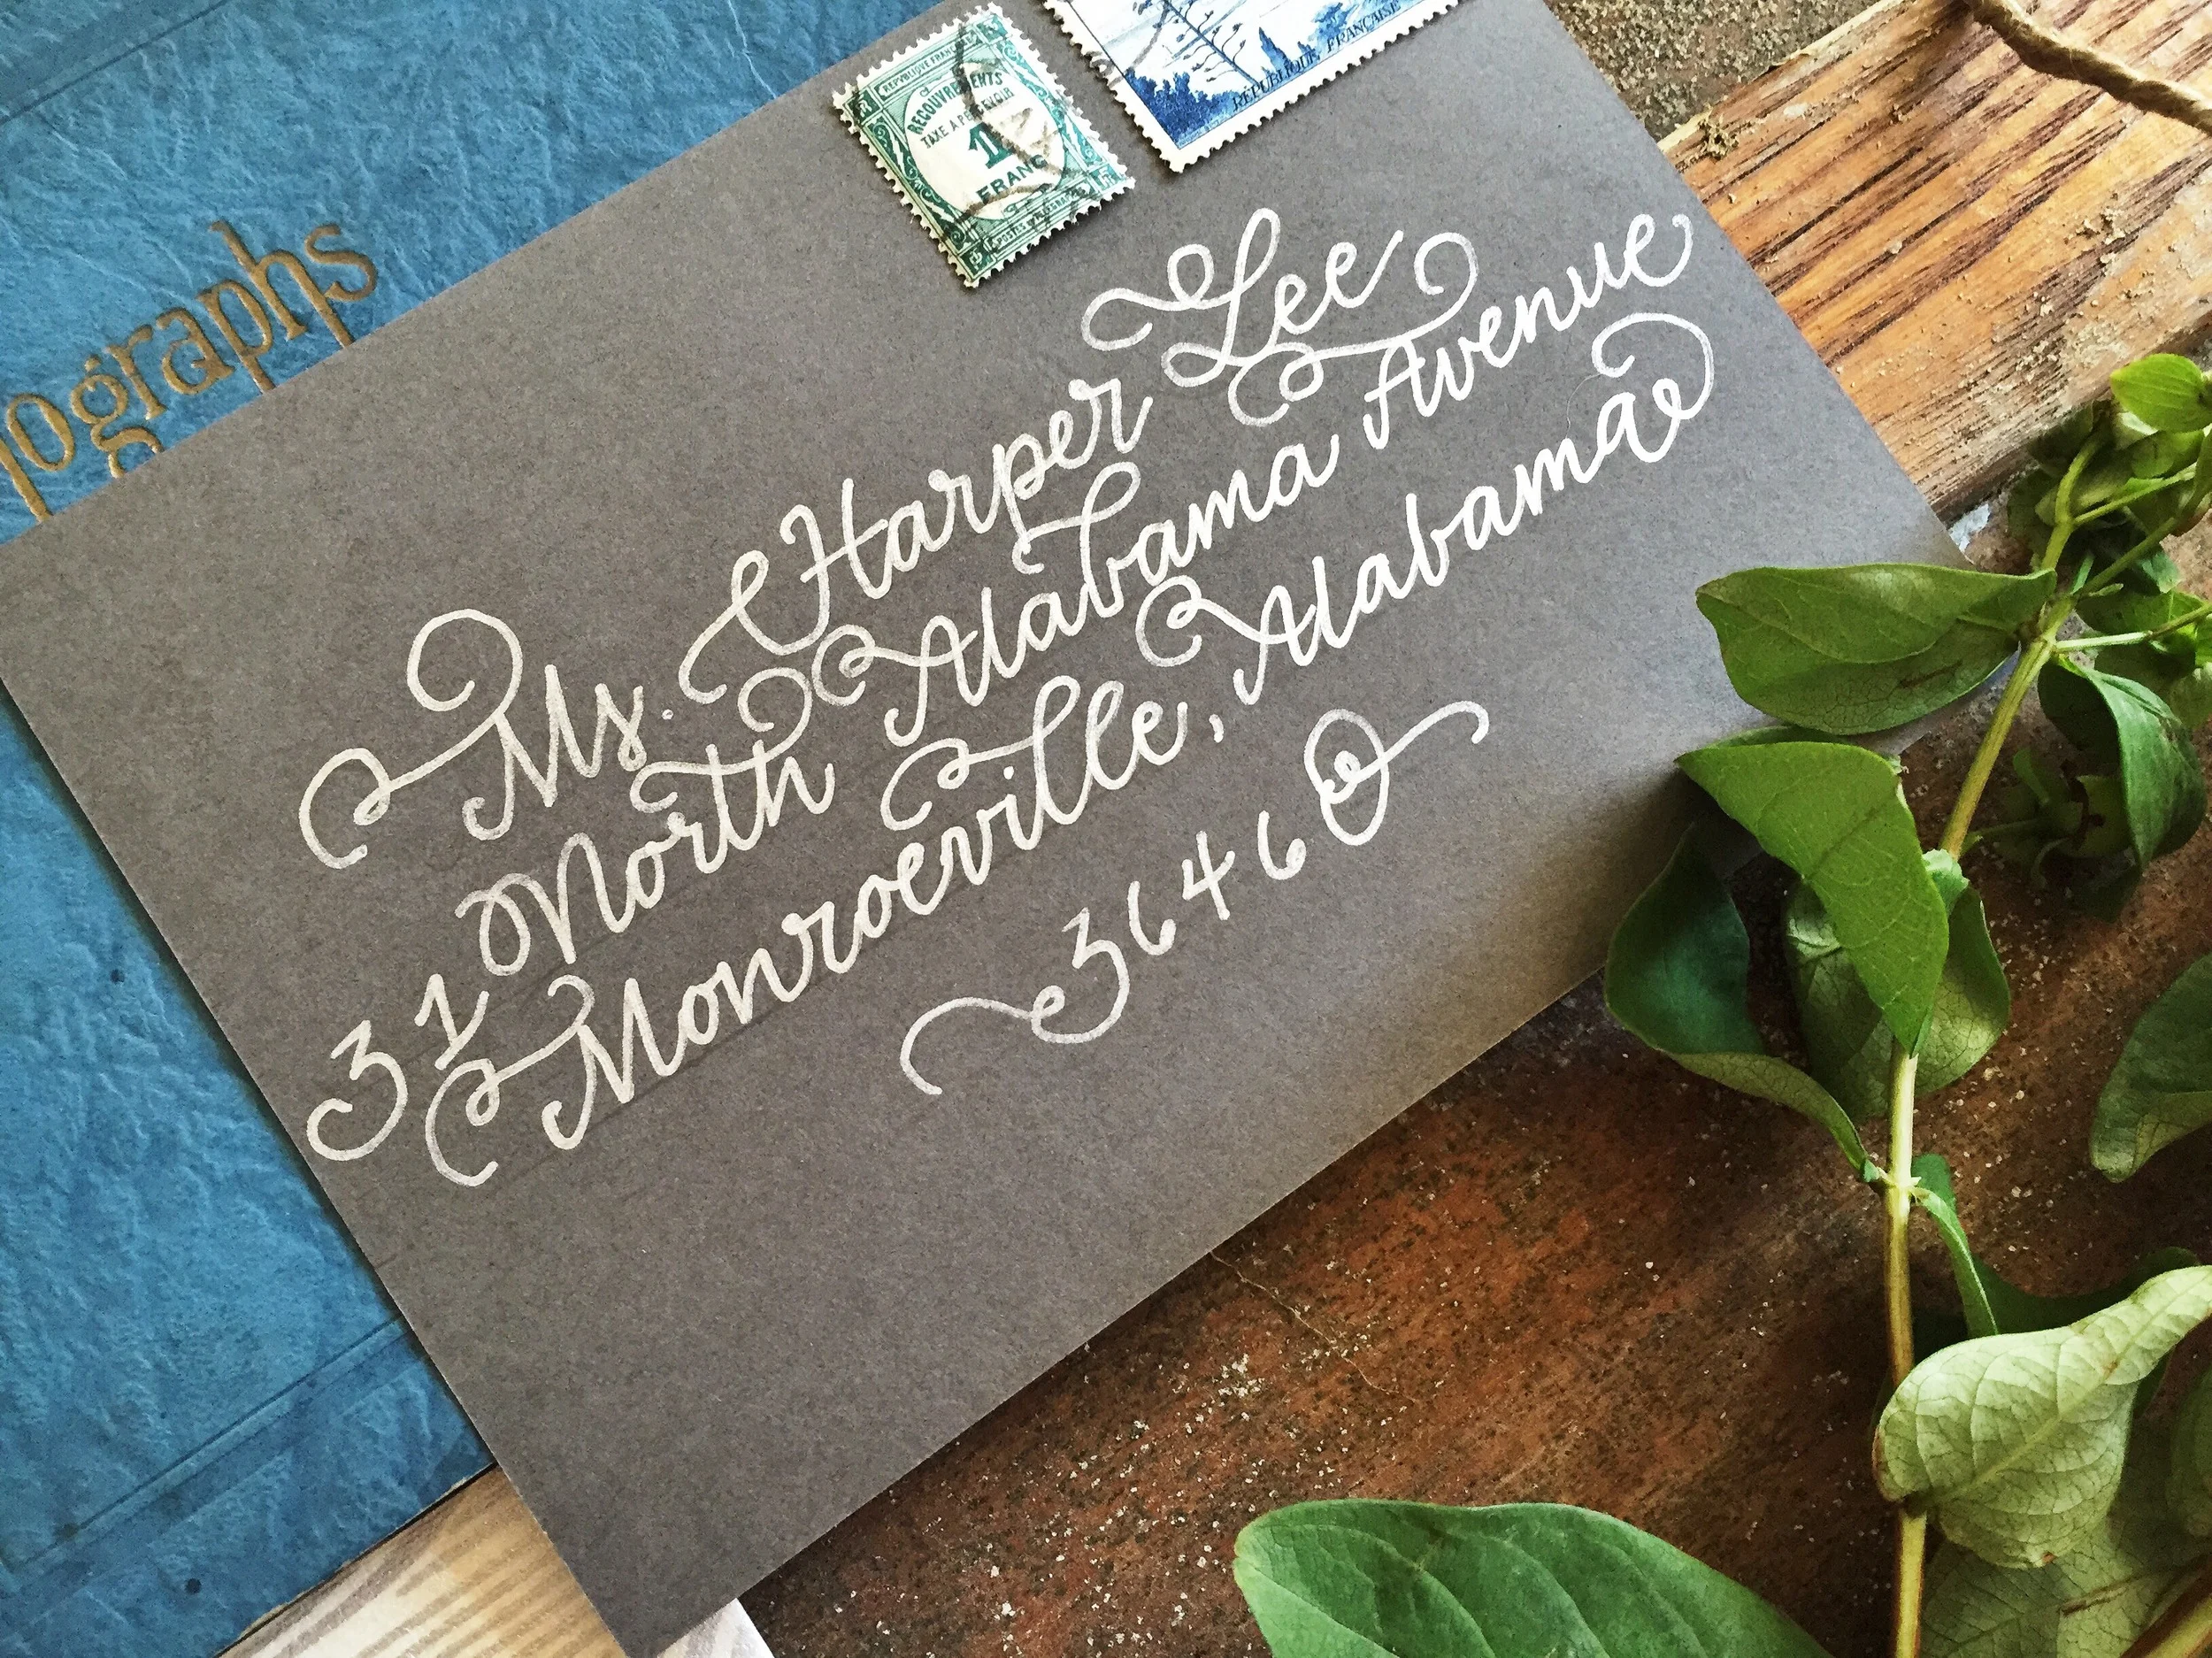 REPUBLIQUE FRANÇAISE
RECOUVREMENTS
TAXE A PERCEVOIR
1
FRANC
RÉPUBLIQUE FRANÇAISE
ographs
Ms. Harper Lee
31 North Alabama Avenue
Monroeville, Alabama
36460